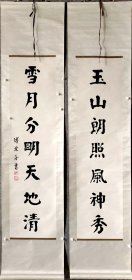 玉山朗照風神秀
雪月分明天地清